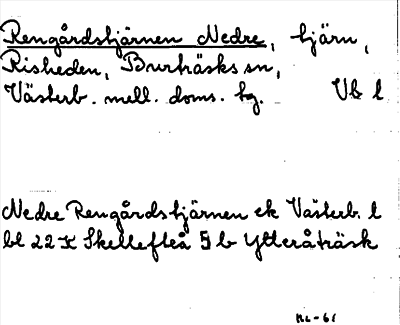 Rengårdstjärnen Nedre, tjärn,
Risheden, Burträsks sn,
Västerb. mell. doms. tg. Vb l
Nedre Rengårdstjärnen ek Västerb. l
bl 22 K Skellefteå 5 b Ytteråträsk